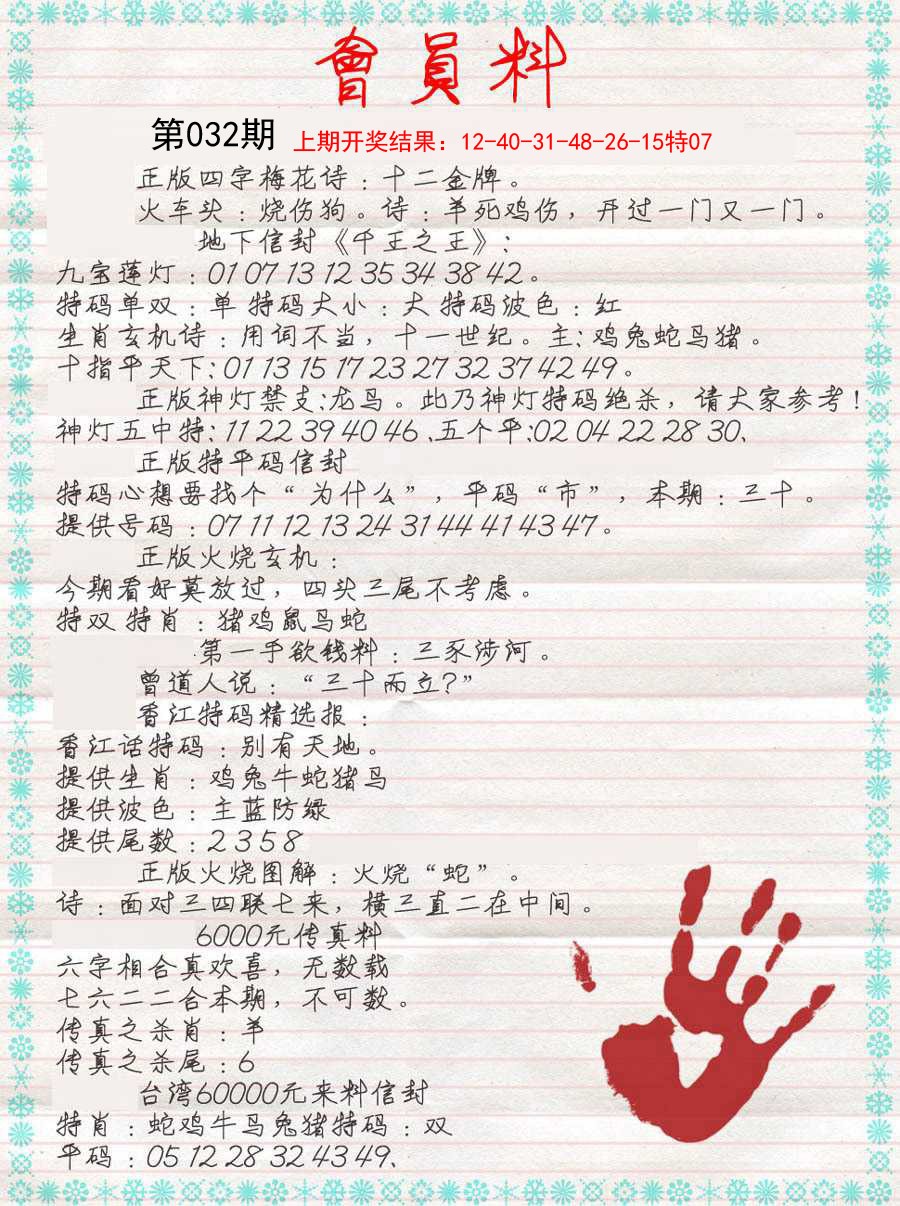 會員料
第032期 上期开奖结果：12-40-31-48-26-15特07
正版四字梅花诗：十二金牌。
火车头：烧伤狗。诗：羊死鸡伤，开过一门又一门。
地下信封《千王之王》：
九宝莲灯：01 07 13 12 35 34 38 42。
特码单双：单 特码大小：大 特码波色：红
生肖玄机诗：用词不当，十一世纪。主：鸡兔蛇马猪。
十指平天下：01 13 15 17 23 27 32 37 42 49。
正版神灯禁支：龙马。此乃神灯特码绝杀，请大家参考！
神灯五中特：11 22 39 40 46、五个平：02 04 22 28 30、
正版特平码信封
特码心想要找个“为什么”，平码“市”，本期：三十。
提供号码：07 11 12 13 24 31 44 41 43 47。
正版火烧玄机：
今期看好莫放过，四头三尾不考虑。
特双 特肖：猪鸡鼠马蛇
第一手欲钱料：三豕涉河。
曾道人说：“三十而立？”
香江特码精选报：
香江话特码：别有天地。
提供生肖：鸡兔牛蛇猪马
提供波色：主蓝防绿
提供尾数：2 3 5 8
正版火烧图解：火烧“蛇”。
诗：面对三四联七来，横三直二在中间。
6000元传真料
六字相合真欢喜，无数载
七六二二合本期，不可数。
传真之杀肖：羊
传真之杀尾：6
台湾60000元来料信封
特肖：蛇鸡牛马兔猪特码：双
平码：05 12 28 32 43 49、